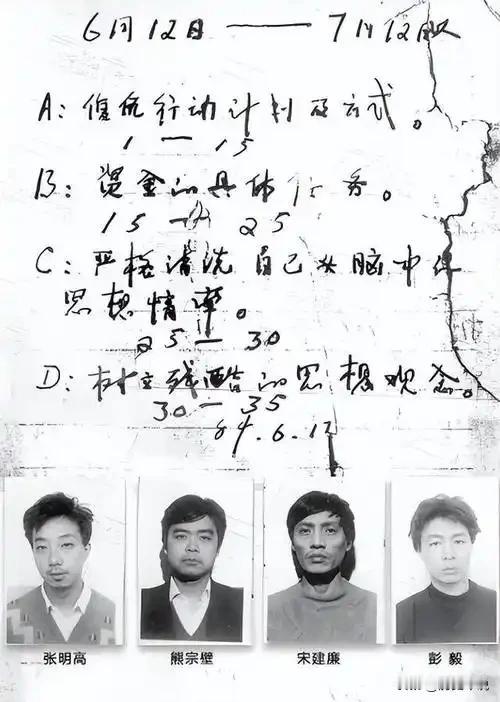 6月12日 —— 7月12日
A：復仇行动计划及方式。
1 — 15
B：资金的具体任务。
15 — 25
C：严格清洗自己头脑中
思想情绪。
25 — 30
D：树立残酷的思想观念。
30 — 35
84.6.12
张明高 熊宗壁 宋建廉 彭毅